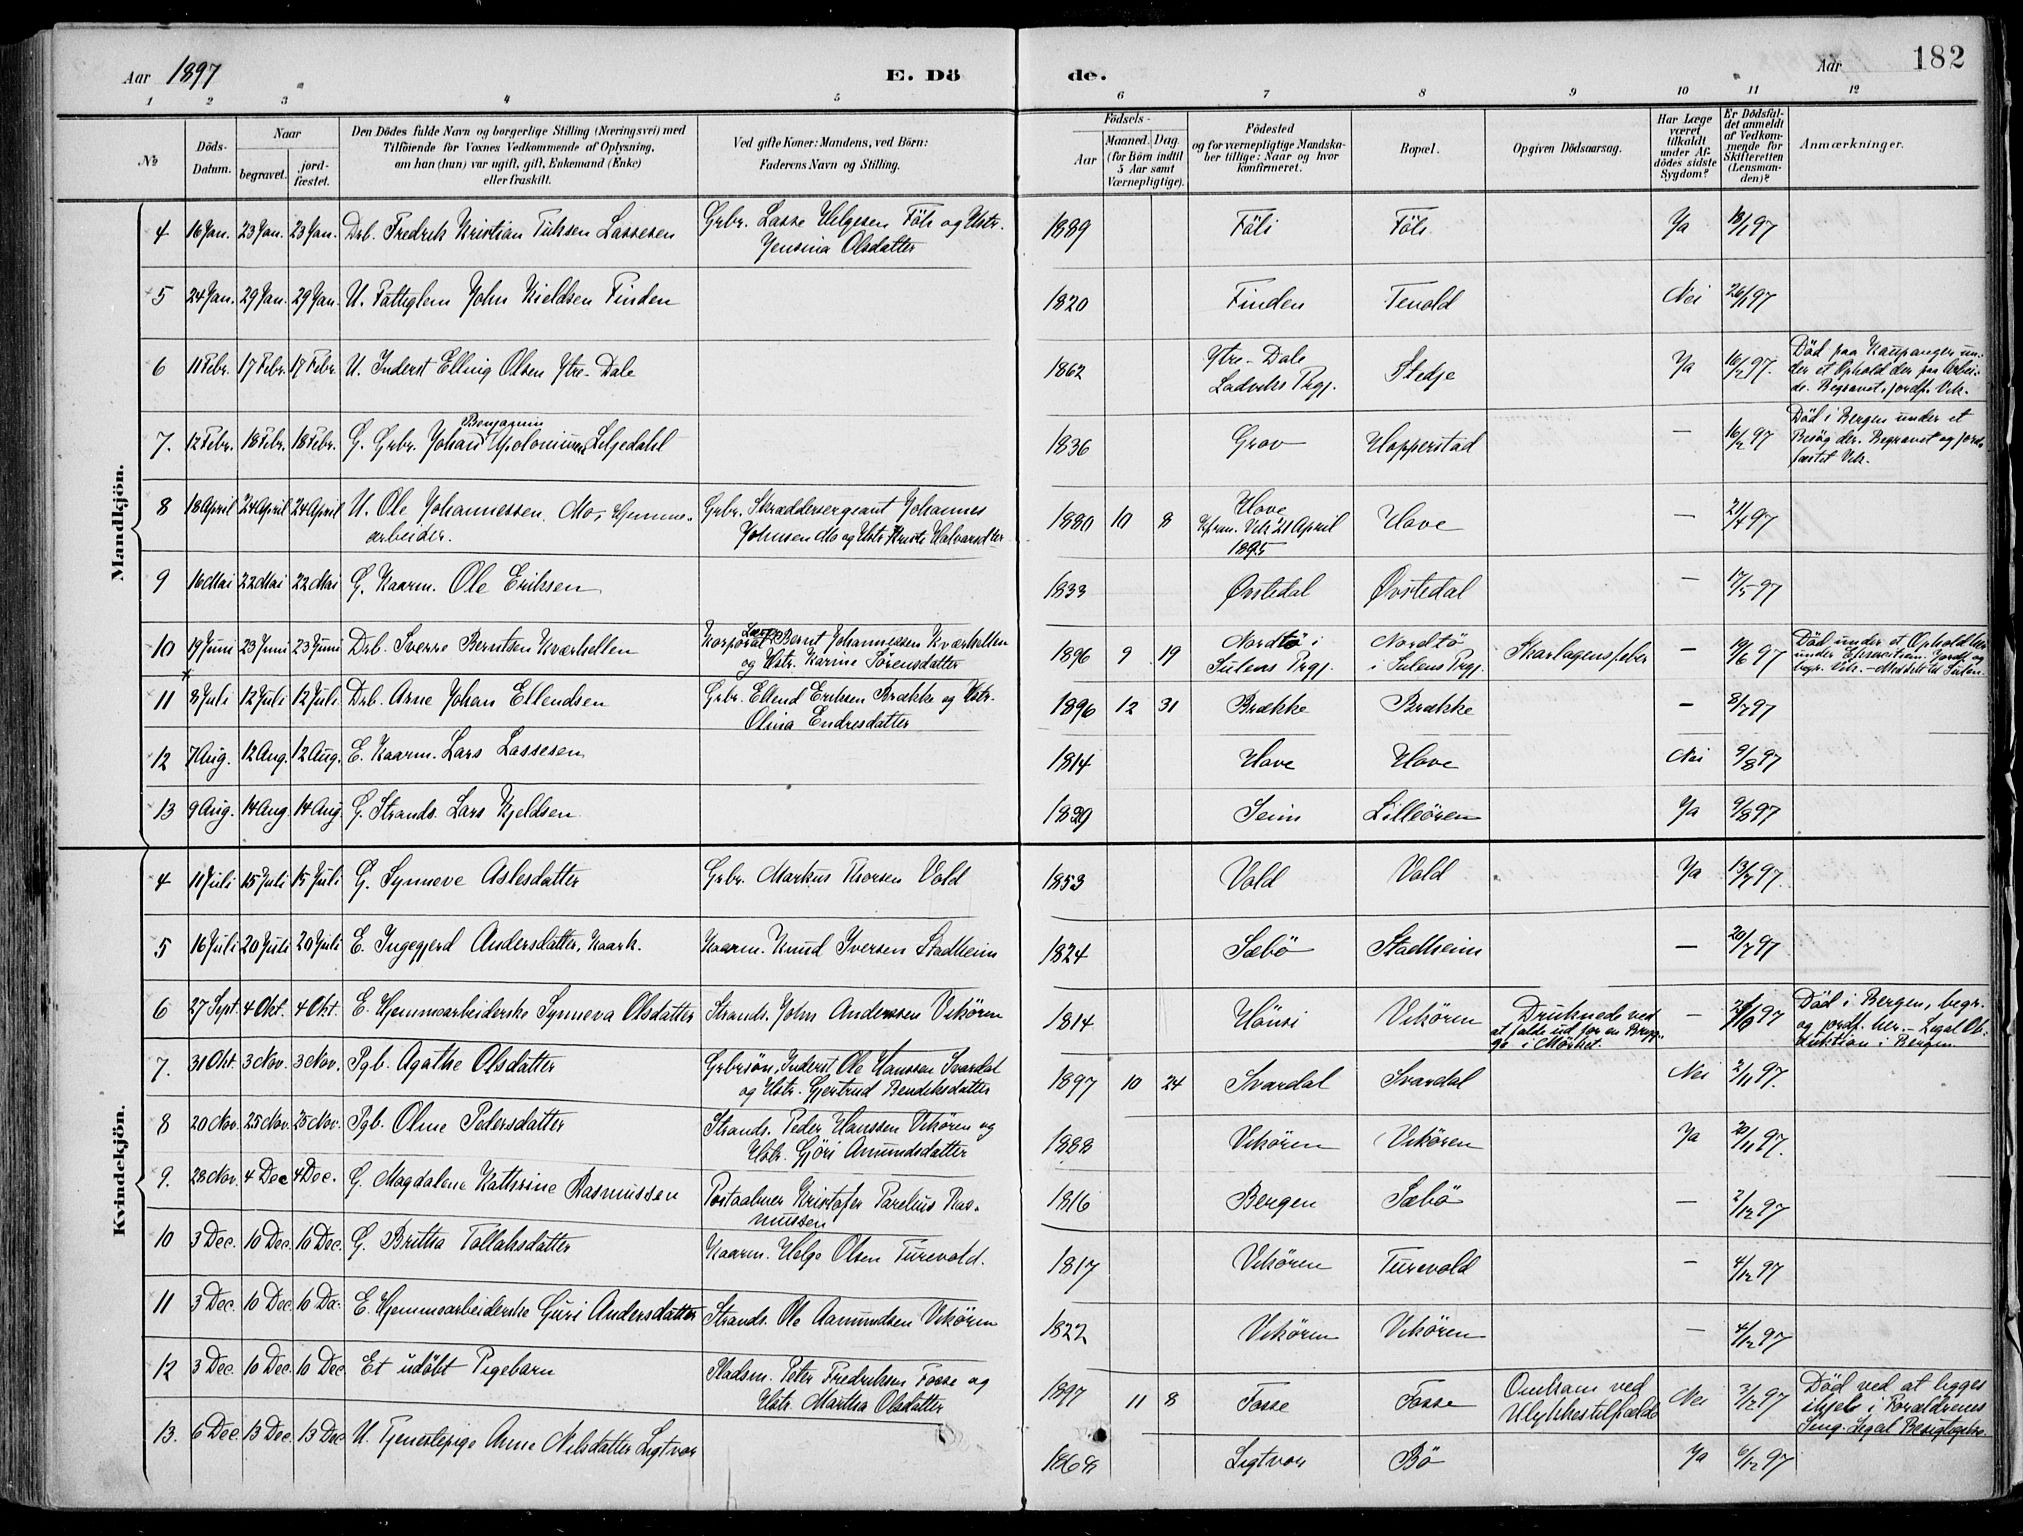 Aar 1897 E. Dö de. Aar 182
1 2 3 4 5 6 7 8 9 10 11 12
No
Döds-Datum.
Naar
begravet.
jordfæstet.
Den Dödes fulde Navn og borgerlige Stilling (Næringsvei) med
Tilföiende for Voxnes Vedkommende af Oplysning,
om han (hun) var ugift, gift, Enkemand (Enke)
eller fraskilt.
Ved gifte Koner: Mandens, ved Börn:
Faderens Navn og Stilling.
Födsels-
Aar
Maaned. Dag.
(for Börn indtil
5 Aar samt
Værnepligtige).
Födested
og for værnepligtige Mandska-
ber tillige: Naar og hvor
konfirmeret.
Bopæl.
Opgiven Dödsaarsag.
Har Læge
været
tilkaldt
under Af-
dödes sidste
Sygdom?
Er Dödsfal-
det anmeldt
af Vedkom-
mende for
Skifteretten
(Lensman-
den)?
Anmærkninger.
Mandkjön.
4 16 Jan. 23 Jan. 23 Jan. Drb. Fredrik Kristian Lassesen Grbr. Lasse Helgesen Föli og Hstr. 1889 Föli Föli Ja 18/1 97
Jensina Olsdatter
5 24 Jan. 29 Jan. 29 Jan. U. Fattiglem John Kieldsen Finden 1820 Finden Tenold Nei 26/1 97
6 11 Febr. 17 Febr. 17 Febr. U. Inderst Elling Olsen Ytre-Dale 1862 Ytre-Dale Stedje Ja 16/2 97. Död paa Kaupanger un-
Ladviks Prgj. der et Ophold der paa Arbei-
de. Begravet, jordf. Vik.
Benjamin
7. 12 Febr. 18 Febr. 18 Febr. G. Grbr. Johan Apolonius Liljedahl 1836 Grov Hopperstad — 16/2 97 Död i Bergen under et
Besög der. Begravet og jord-
fæstet Vik.
8 18 April 24 April 24 April U. Ole Johannessen Mo, Hjemme- Grbr. Skræddersergeant Johannes 1880 10 8 Hove Hove — 21/4 97
arbeider. Johnsen Mo og Hstr. Halvarsdtr. Kfrm. Vik 21 April
1895
9 16 Mai 22 Mai 22 Mai G. Kaarm. Ole Eriksen 1833 Øvstedal Øvstedal — 17/5 97
10 19 Juni 23 Juni 23 Juni Drb. Sverre Berntsen Kværhellen Korporal Bernt Johannessen Kværhellen 1896 9 19 Nordtö i Nordtö Skarlagensfeber — 19/6 97 Död under et Ophold her
og Hstr. Karine Sörensdatter Sulens Prgj. i Sulens Prgj. under Jordf. og
begr. Vik. – Meddelt til Sulen
11 8 Juli 12 Juli 12 Juli Drb. Arne Johan Ellendsen Grbr. Ellend Eriksen Brække og Hstr. 1896 12 31 Brække Brække — 8/7 97
Olina Endresdatter
12 7 Aug. 12 Aug. 12 Aug. E. Kaarm. Lars Lassesen 1814 Hove Hove Nei 9/8 97
13 9 Aug. 14 Aug. 14 Aug. G. Strands. Lars Kjeldsen 1829 Seim Lilleören Ja 9/8 97
Kvindekjön.
4 11 Juli 15 Juli 15 Juli G. Synneve Aslesdatter Grbr. Markus Thorsen Vold 1853 Vold Vold Ja 13/7 97.
5 16 Juli 20 Juli 20 Juli E. Ingegjerd Andersdatter, Kaark. Kaarm. Knud Iversen Stadheim 1824 Sæbö Stadheim — 20/7 97
6 27 Sept. 4 Okt. 4 Okt. E. Hjemmearbeiderske Synneva Olsdatter Strands. John Andersen Vikören 1814 Hönsi Vikören Druknede ved — 97 Död i Bergen, begr.
at falde ud for en Bryg- og jordf. her. – Legal Ob-
ge i Mörket. duktion i Bergen.
7. 31 Okt. 3 Nov. 3 Nov. Pgb. Agathe Olsdatter Grbrsön, Inderst Ole Hanssen Svardal 1897 10 24 Svardal Svardal Nei 2/11 97.
og Hstr. Gjertrud Bendiksdatter
8 20 Nov. 25 Nov. 25 Nov. Pgb. Oline Pedersdatter Strands. Peder Hanssen Vikören og 1888 Vikören Vikören Ja 20/11 97.
Hstr. Gjöri Amundsdatter
9. 28 Nov. 4 Dec 4 Dec. G. Magdalene Kathrine Rasmussen Postaabner Kristofer Parelius Ras- 1816 Bergen Sæbö — 2/12 97
mussen
10 3 Dec. 10 Dec. 10 Dec. G. Britha Tollaksdatter Kaarm. Helge Olsen Turevold. 1817 Vikören Turevold — 4/12 97
11 3 Dec. 10 Dec. 10 De. E. Hjemmearbeiderske Guri Andersdatter Strands. Ole Aamundsen Vikören 1822 Vikören Vikören — 4/12 97
12 3 Dec. 10 Dec. 10 Dec. Et udöbt Pigebarn Pladsm. Peter Fredriksen Fosse og 1897 11 8 Fosse Fosse Omkom ved Nei 3/12 97 Död ved at ligges
Hstr. Martha Olsdatter Ulykkestilfælde ihjel i Forældrenes
Seng. Legal Besigtigelse.
13. 6 Dec. 13 Dec. 13 Dec U. Tjenestepige Anne Nilsdatter Ligtvor 1868 Ligtvor Bö Ja 6/12 97